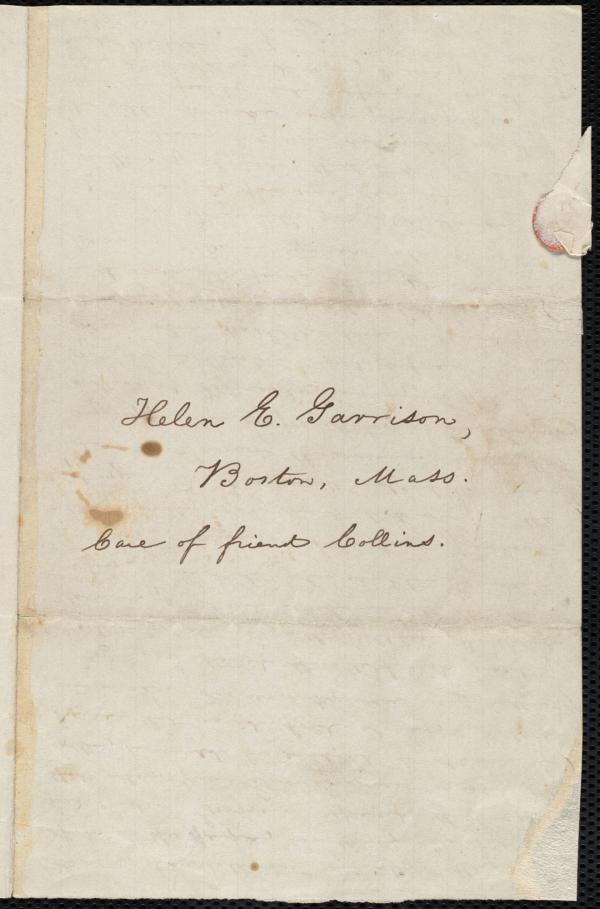 Helen E. Garrison,
Boston, Mass.
Care of friend Collins.